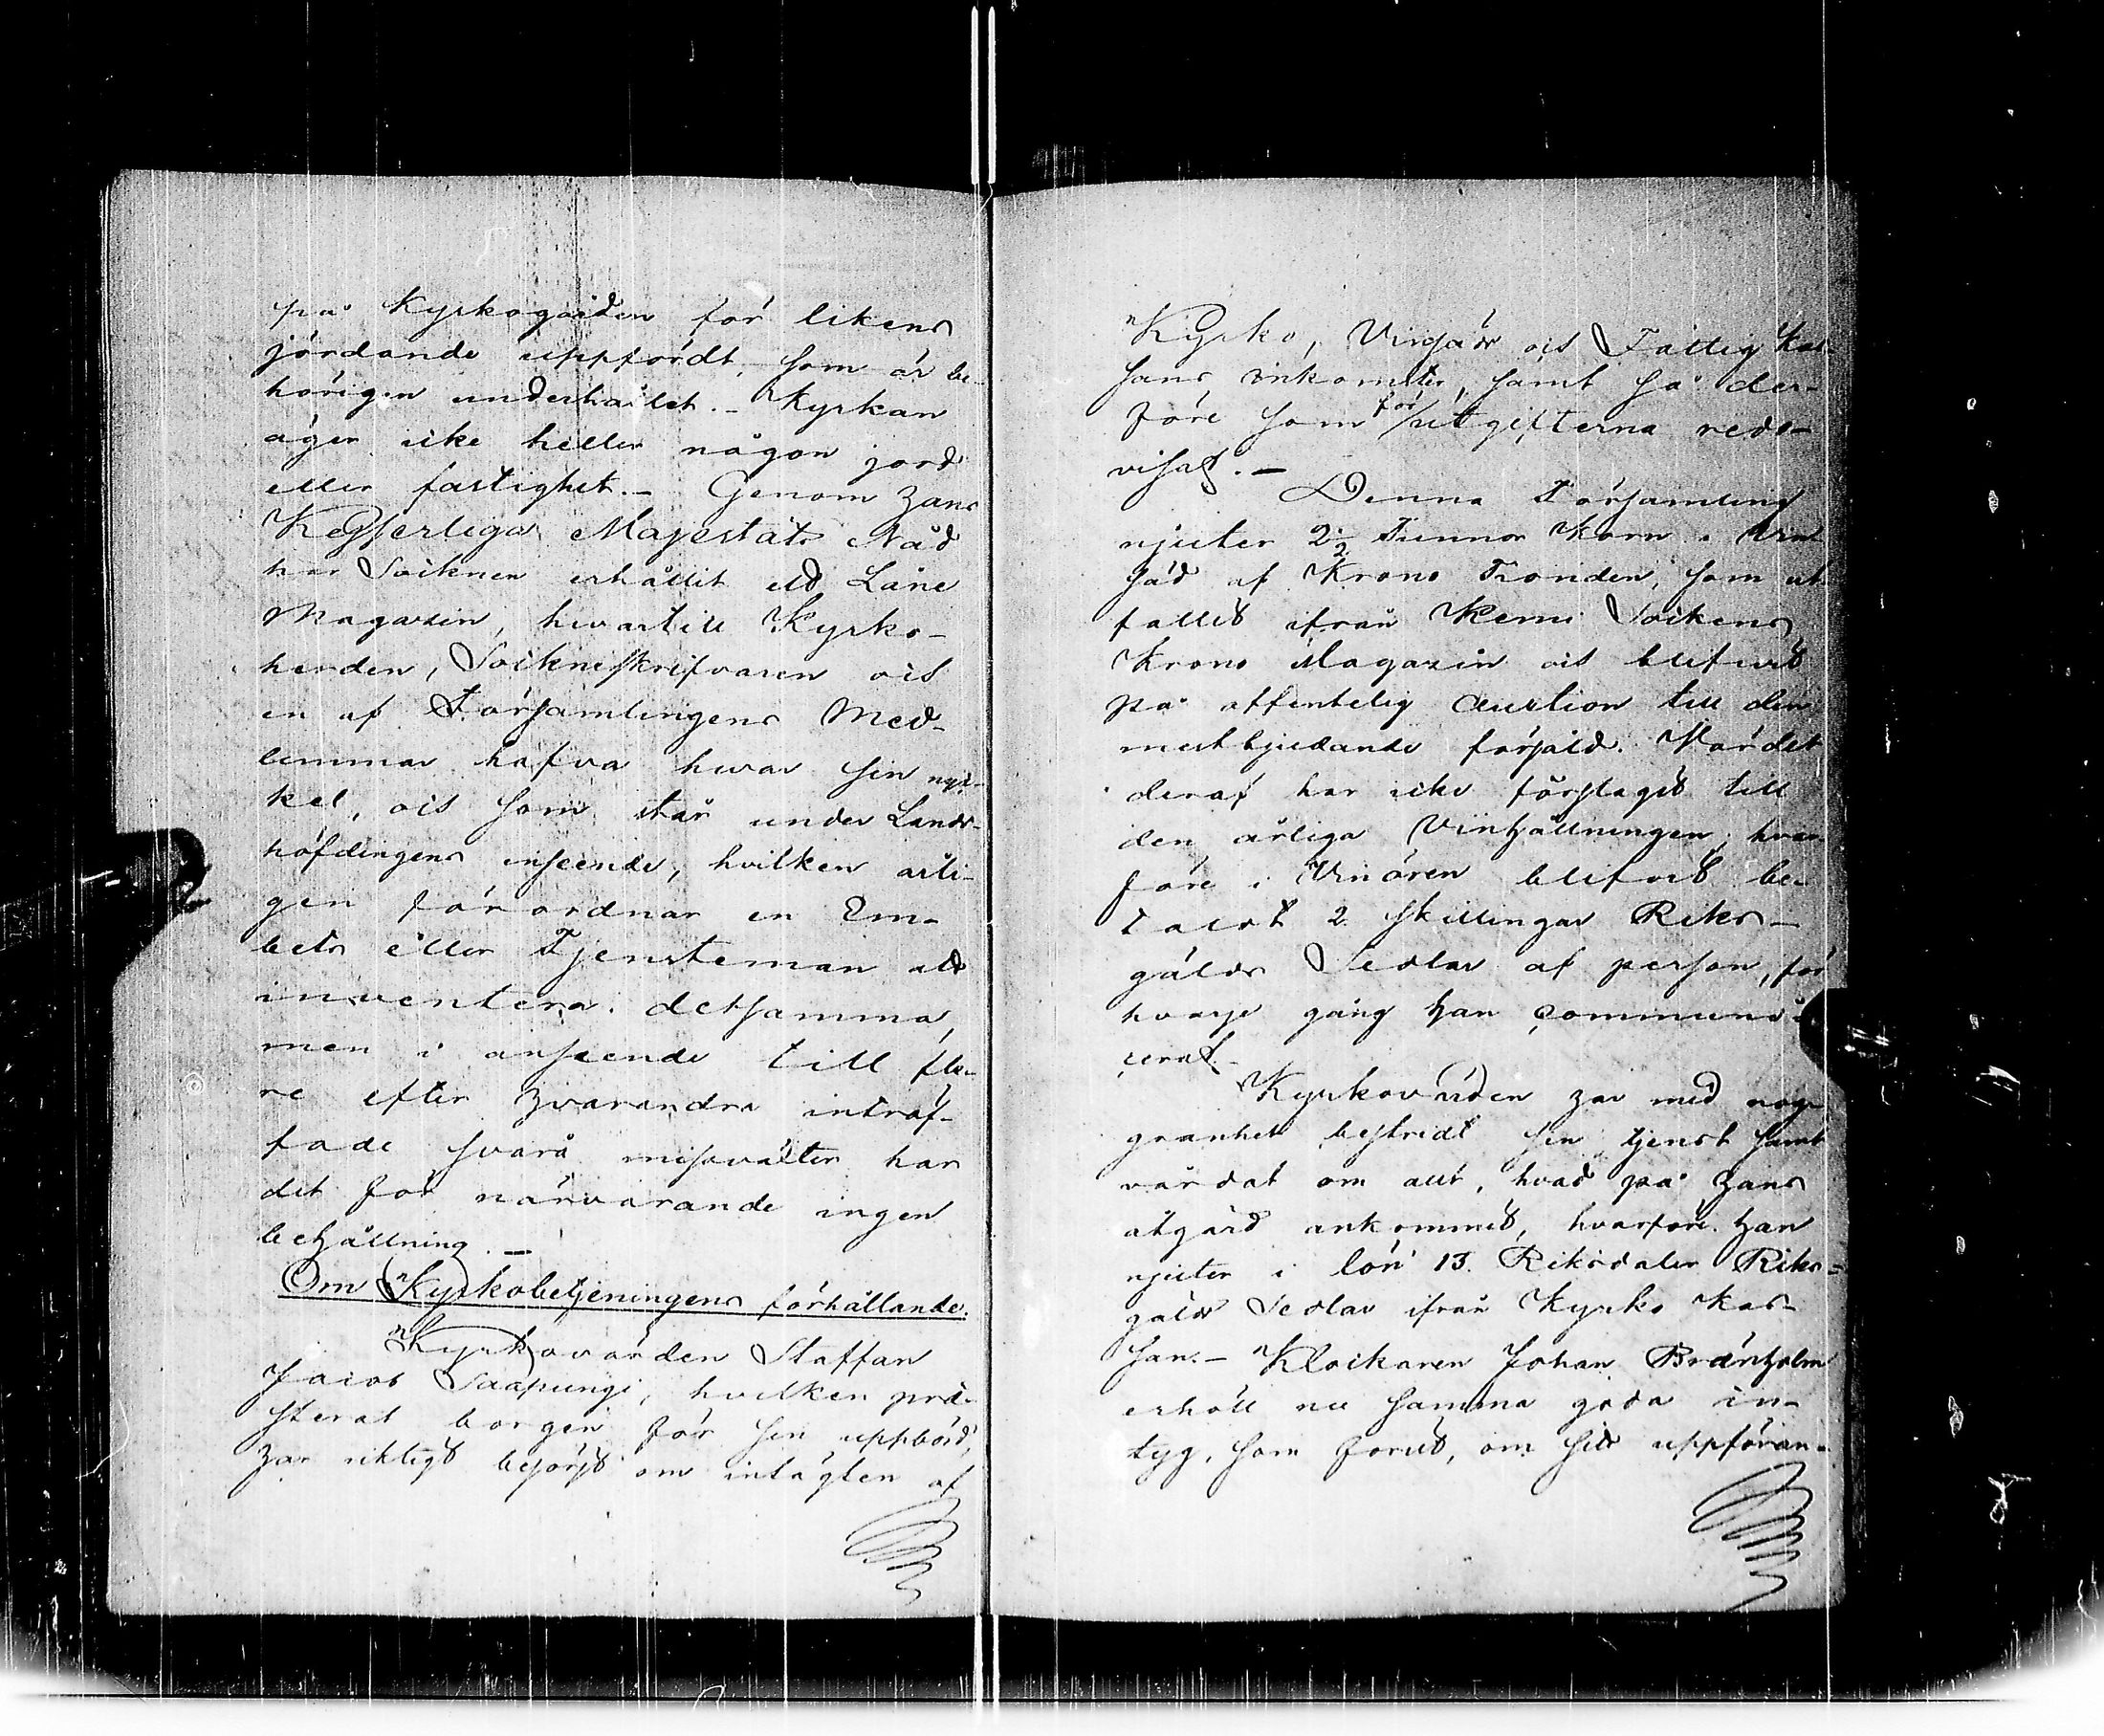 på Kyrkogården för likens
jordande uppfördt, som är be-
hörigen underhållet. - Kyrkan
äger icke heller någon jord
eller fastighet. - Genom Hans
Kejserliga Majestäts Nåd
har Socknen erhållit ett Låne
Magazin, hvartill Kyrko-
herden, Sockneskrifvaren och
en af Församlingens Med-
lemmar hafva hvar sin nyc-
kel, och som står under Lands-
höfdingens inseende, hvilken årli-
gen förordnar en Em-
bets eller Tjensteman att
inventera detsamma,
men i anseende till fle-
re efter hvarandra inträf-
fade svåra missväxter har
det för närvarande ingen
behållning. -
Om Kyrkobetjeningens förhållande.
Kyrkovärden Staffan
Jacob Saapungi, hvilken præ-
sterat borgen för sin uppbörd,
har riktigt besörjt om intägten af
Kyrko, Vingärds och Fattig Kas-
sans inkomster, samt så der-
före som för utgifterna redo-
visat. -
Denna Församling
njuter 2 1/2 Tunnor Korn i Vin
säd af Krono Tionden, som ut-
fallit ifrån Kemi Sockens
Krono Magazin och blifvit
på offentelig Auction till den
mestbjudande försåld. Värdet
deraf har icke förslagit till
den årliga Vinhållningen, hvar-
före i Vinören blifvit be-
talat 2 skillingar Riks-
gälds Sedlar af person, för
hvarje gång han communi-
cerat. -
Kyrkovärden har med nog-
granhet bestridt sin tjenst samt
vårdat om allt, hvad på hans
åtgärd ankommit, hvarföre han
njuter i lön 13 Riksdaler Riks-
gälds Sedlar ifrån Kyrko Kas-
san. - Klockaren Johan Bränholm
erhöll nu samma goda in-
tyg, som förut, om sitt uppföran-